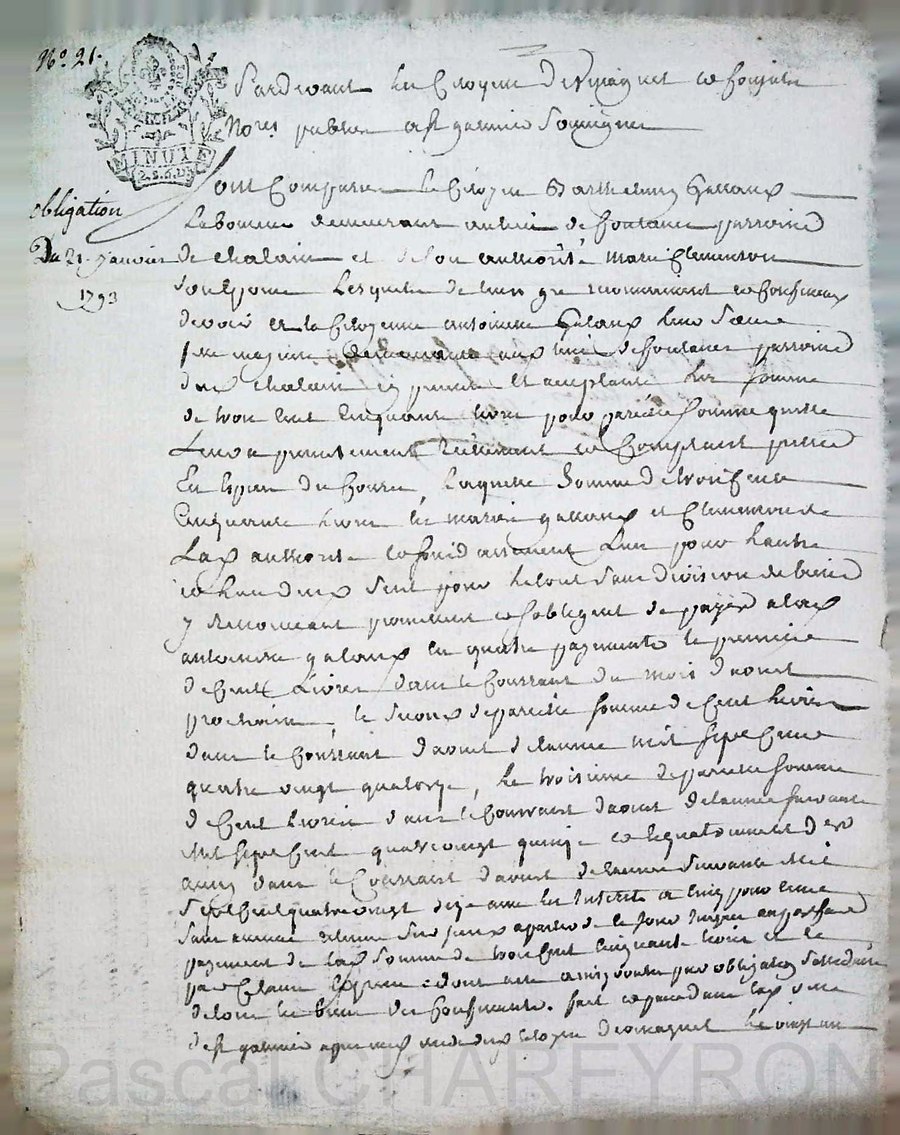 No. 21.
MINUTE
2. S. 6. D.
Pardevant les Citoyens Demagnet et
Nores publics a St galmier Soussignés
obligation
Du 21. Janvier
1793
ont Comparu le Citoyen Barthelemy Gallaux
Laboureur demeurant au lieu de fontanes parroisse
de chalain et de son authorité marie Clemenson
Son Epouse Lesquels de leur gré reconnoissent et Confessent
devoir a la Citoyenne antoinette Galaux leur Sœur
fille majeure demeurante aux lieu de fontanes parroisse
dud chalain icy presente et acceptante La Somme
de trois Cent Cinquante livres pour pareille Somme quelle
Leur a presentement et Comptant pretté
En Espece de Cours, Laquelle Somme de trois Cents
Cinquante Livres les mariés gallaux et Clemenson de
Lad authorité Solidairement L'un pour L'autre
un Seul pour Letout Sans division de biens
y renonceant promettent et Sobligent de payer a lad
antoinette galaux en quatre payements le premier
de Cent Livres dans le Courrant du mois d'aoust
prochain, le Second de pareille Somme de Cent Livres
dans le Courrant daoust de lannée mil Sept Cent
quatre vingt quatorze, Le troisieme de pareille Somme
de Cent Livres dans le Courrant daoust de lannée Suivante
Mil Sept Cent quatrevingt quinze et le
aussi dans le Courrant daoust de lannée Suivante Mil
Sept Cent quatrevingt Seize avec les Interets a Cinq pour Cent
Sans aucune retenue a partir de ce Jour Jusqu au parfait
payement de lad Somme de trois Cent Cinquante livres et le
par Clause Expresse dont acte par obligation
de tous les biens des Confessants. fait et passé dans lad ville
de St galmier Citoyen Demagnet Le vingt un
Pascal CHAREYRON